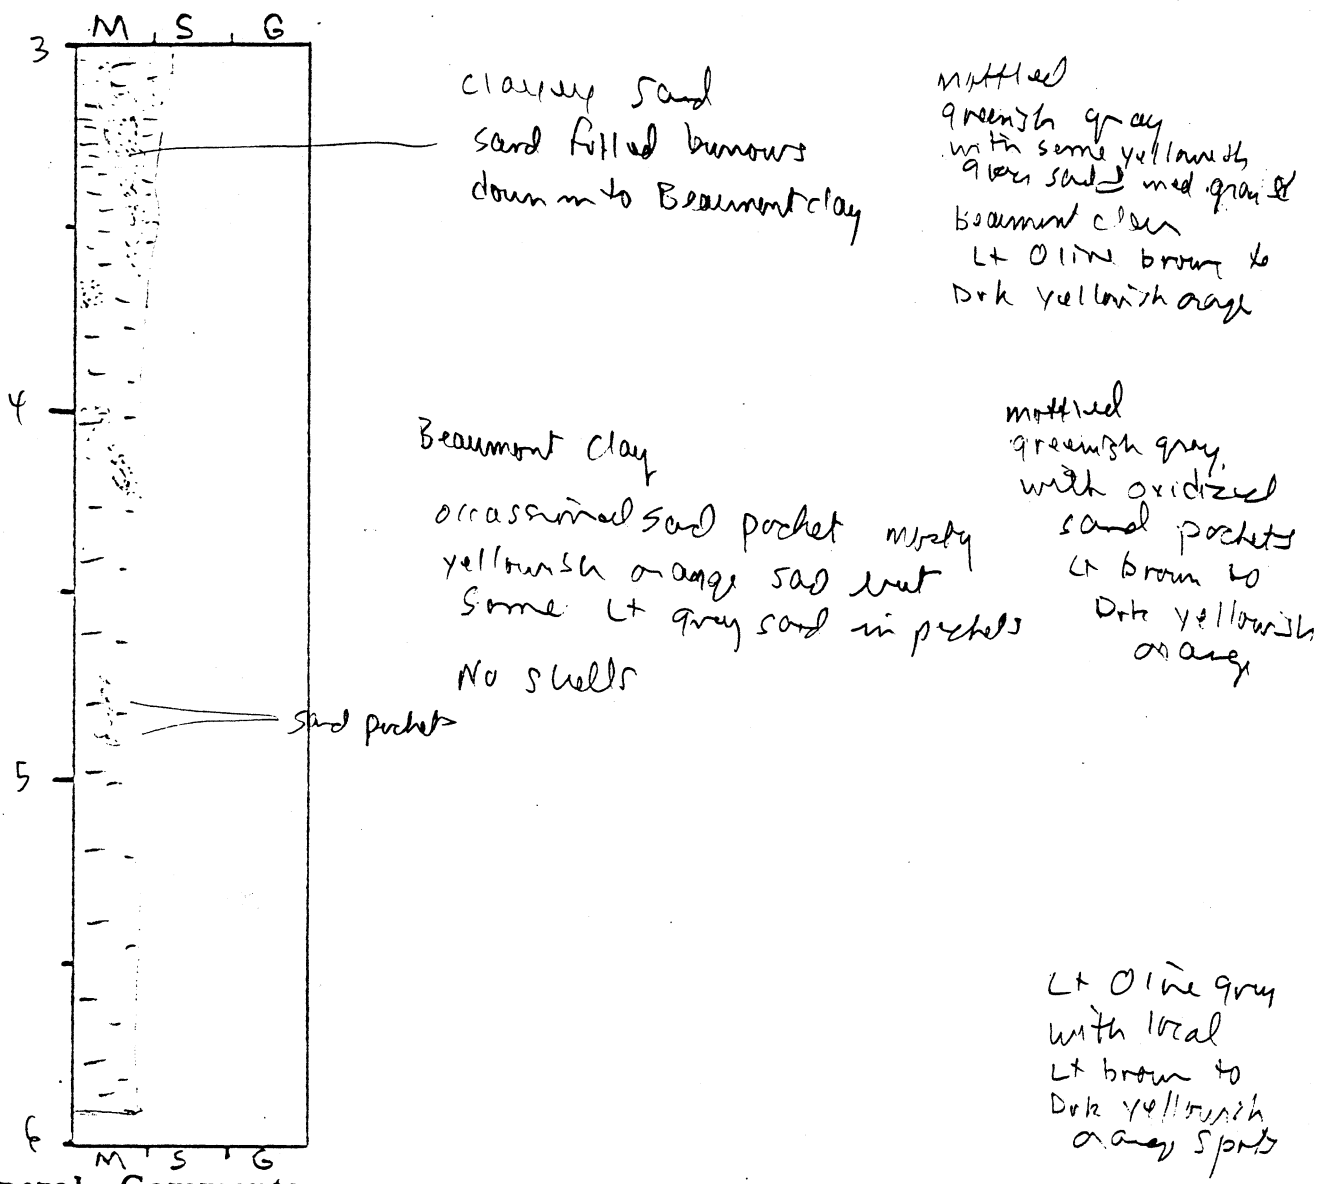 M S G
3
clayey sand
sand filled burrows
down into Beaumont clay
mottled
greenish gray
with some yellowish
green sand med. gray
Beaumont clay
Lt Olive brown to
Drk yellowish orange
4
Beaumont clay
occassional sand pocket mostly
yellowish orange sand but
some Lt gray sand in pockets
No shells
sand pockets
mottled
greenish gray,
with oxidized
sand pockets
Lt brown to
Drk yellowish
orange
5
Lt Olive gray
with local
Lt brown to
Drk yellowish
orange spots
6
M S G